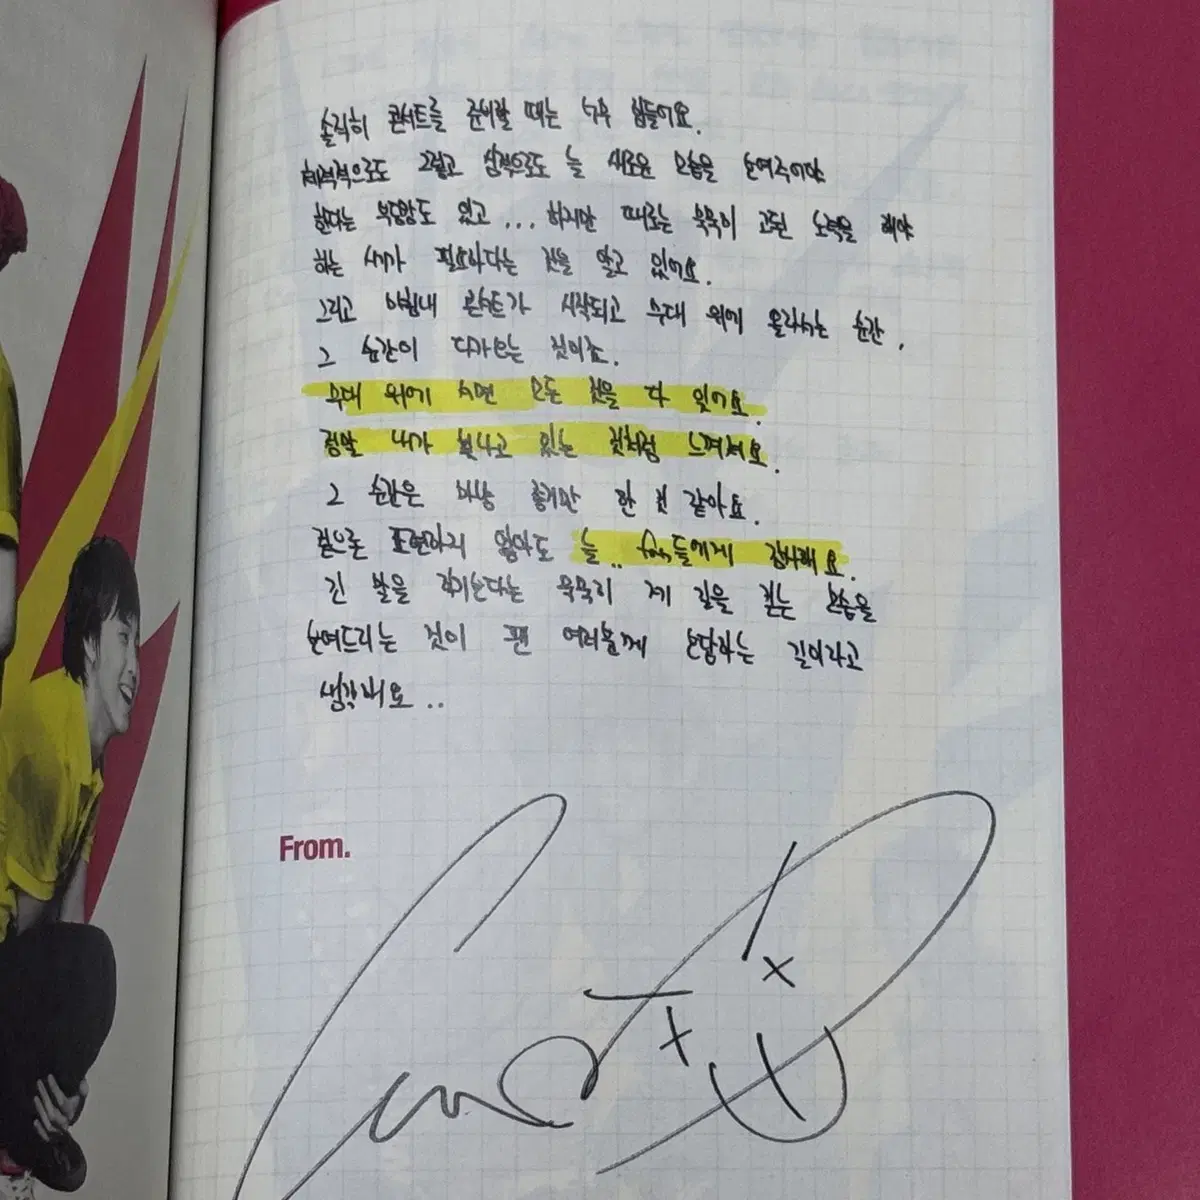 솔직히 콘서트를 준비할 때는 너무 힘들어요.
체력적으로도 그렇고 심적으로도 늘 새로운 모습을 보여주어야
한다는 부담감도 있고... 하지만 때로는 묵묵히 고된 노력을 해야
하는 시기가 필요하다는 것을 알고 있어요.
그리고 마침내 콘서트가 시작되고 무대 위에 올라서는 순간,
그 순간이 다가오는 것이죠.
무대 위에 서면 모든 것을 다 잊어요.
정말 내가 빛나고 있는 것처럼 느껴져요.
그 순간은 마냥 좋기만 한 것 같아요.
겉으론 표현하지 않아도 늘.. fan들에게 감사해요.
긴 말을 하기보다는 묵묵히 제 길을 걷는 모습을
보여드리는 것이 팬 여러분께 보답하는 길이라고
생각해요..
From.